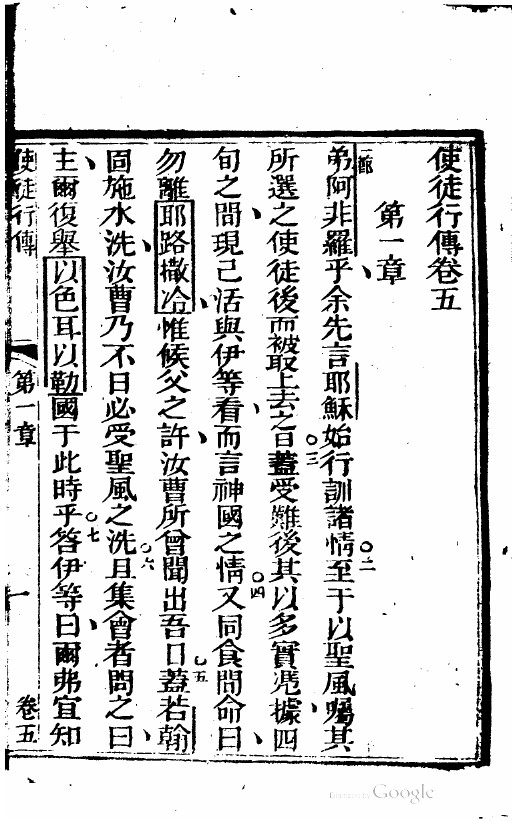 使徒行傳卷五
第一章
一節
弟阿非羅乎余先言耶穌始行訓諸情○二至于以聖風囑其
所選之使徒後而被取上去之日○三蓋受難後其以多實憑據四
旬之間現己活與伊等看而言神國之情○四又同食間命曰
勿離耶路撒冷惟候父之許汝曹所曾聞出吾口○五蓋若翰
固施水洗汝曹乃不日必受聖風之洗○六且集會者問之曰
主爾復舉以色耳以勒國于此時乎○七答伊等曰爾弗宜知
使徒行傳
第一章
一
卷五
Digitized by Google